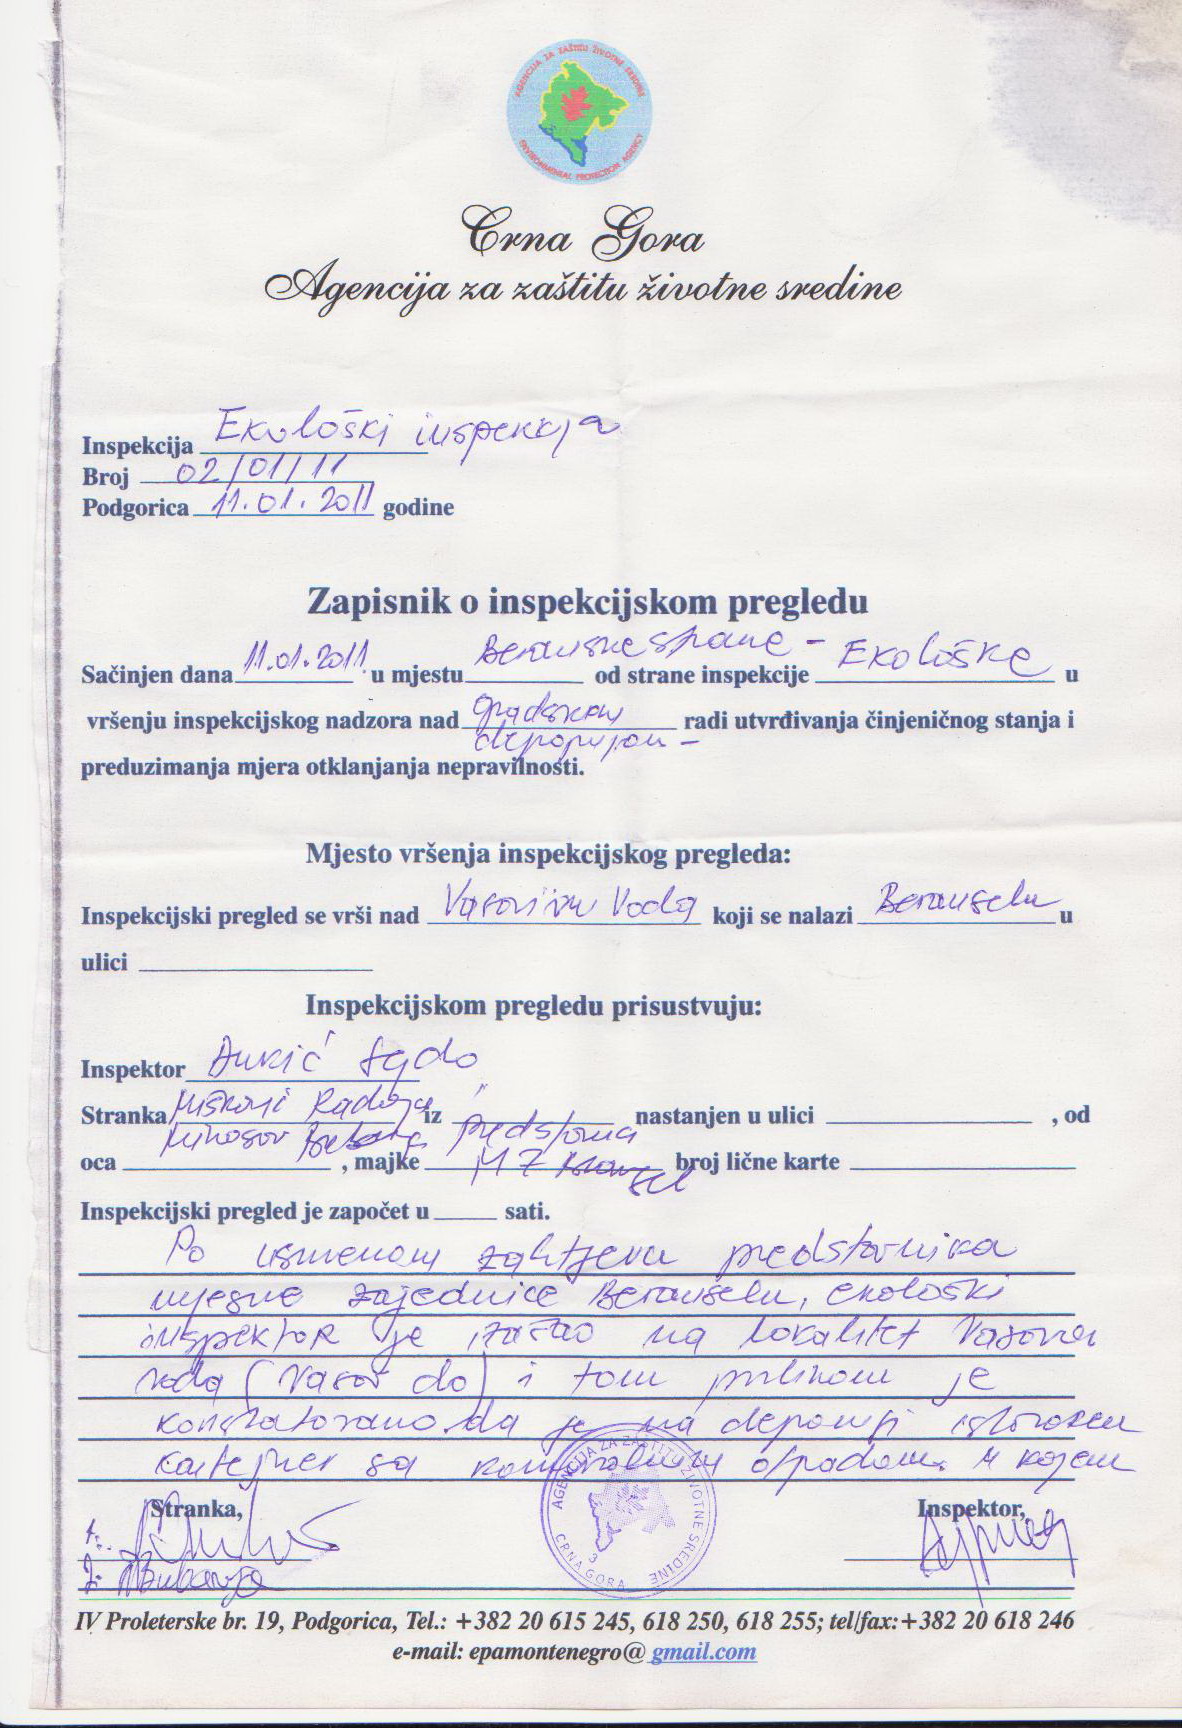 AGENCIJA ZA ZAŠTITU ŽIVOTNE SREDINE
ENVIRONMENTAL PROTECTION AGENCY
Crna Gora
Agencija za zaštitu životne sredine
Inspekcija Ekološki inspekcija
Broj 02/01/11
Podgorica 11.01.2011 godine
Zapisnik o inspekcijskom pregledu
Sačinjen dana 11.01.2011 u mjestu od strane inspekcije Ekološke u
vršenju inspekcijskog nadzora nad gradskom radi utvrđivanja činjeničnog stanja i
deponijom -
preduzimanja mjera otklanjanja nepravilnosti.
Mjesto vršenja inspekcijskog pregleda:
Inspekcijski pregled se vrši nad Voda koji se nalazi Beranselu u
ulici
Inspekcijskom pregledu prisustvuju:
Inspektor
Stranka iz nastanjen u ulici , od
oca , majke MZ broj lične karte
Inspekcijski pregled je započet u sati.
Po usmenom zahtjevu predstavnika
mjesne zajednice Beranselu, ekološki
inspektor je izašao na lokalitet Vasova
voda (Vasov do) i tom prilikom je
konstatovano da je na deponiji istovaren
sa komunalnim otpadom. u kojem
Stranka, Inspektor,
1.
2.
AGENCIJA ZA ZAŠTITU ŽIVOTNE SREDINE
CRNA GORA
3
IV Proleterske br. 19, Podgorica, Tel.: +382 20 615 245, 618 250, 618 255; tel/fax:+382 20 618 246
e-mail: epamontenegro@ gmail.com